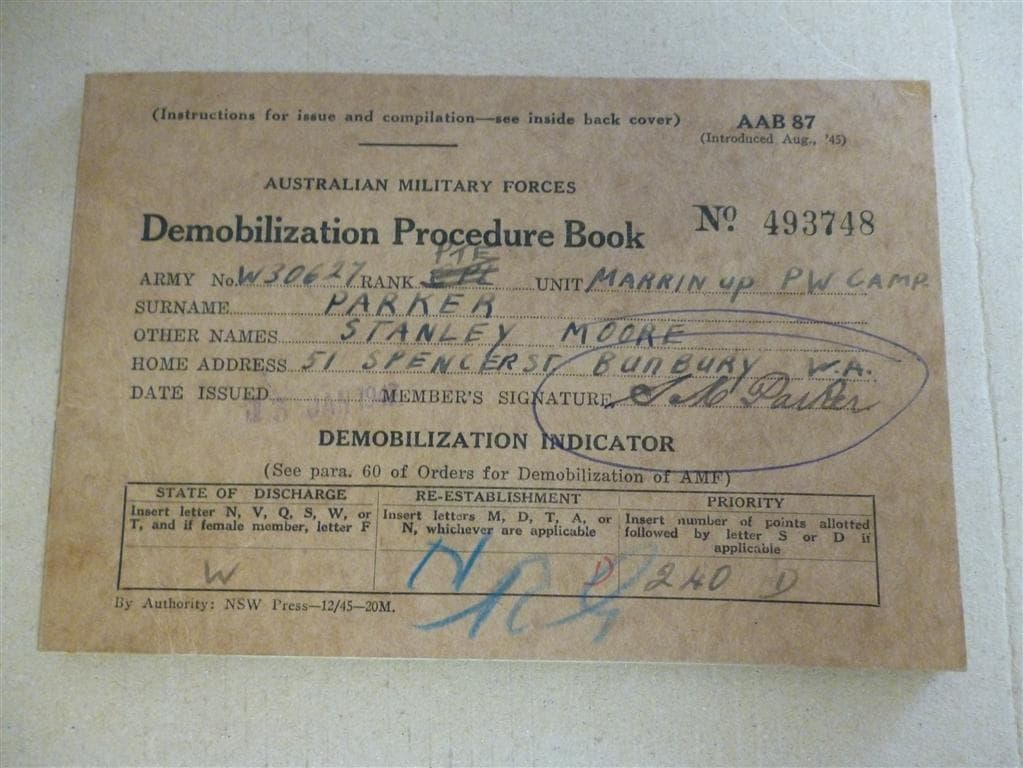 (Instructions for issue and compilation—see inside back cover)
AAB 87
(Introduced Aug., '45)
AUSTRALIAN MILITARY FORCES
Demobilization Procedure Book
No. 493748
PTE
ARMY No. W30627 RANK UNIT MARRINUP PW CAMP
SURNAME PARKER
OTHER NAMES STANLEY MOORE
HOME ADDRESS 51 SPENCER ST BUNBURY W.A.
DATE ISSUED JAN MEMBER'S SIGNATURE S M Parker
DEMOBILIZATION INDICATOR
(See para. 60 of Orders for Demobilization of AMF)
STATE OF DISCHARGE
Insert letter N, V, Q, S, W, or
T, and if female member, letter F
W
RE-ESTABLISHMENT
Insert letters M, D, T, A, or
N, whichever are applicable
N
D
PRIORITY
Insert number of points allotted
followed by letter S or D if
applicable
240 D
By Authority: NSW Press—12/45—20M.